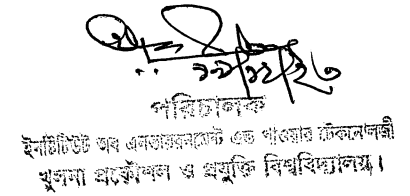 পরিচালক
ইনস্টিটিউট অব এনভায়রনমেন্ট এন্ড পাওয়ার টেকনোলজী
খুলনা প্রকৌশল ও প্রযুক্তি বিশ্ববিদ্যালয়।